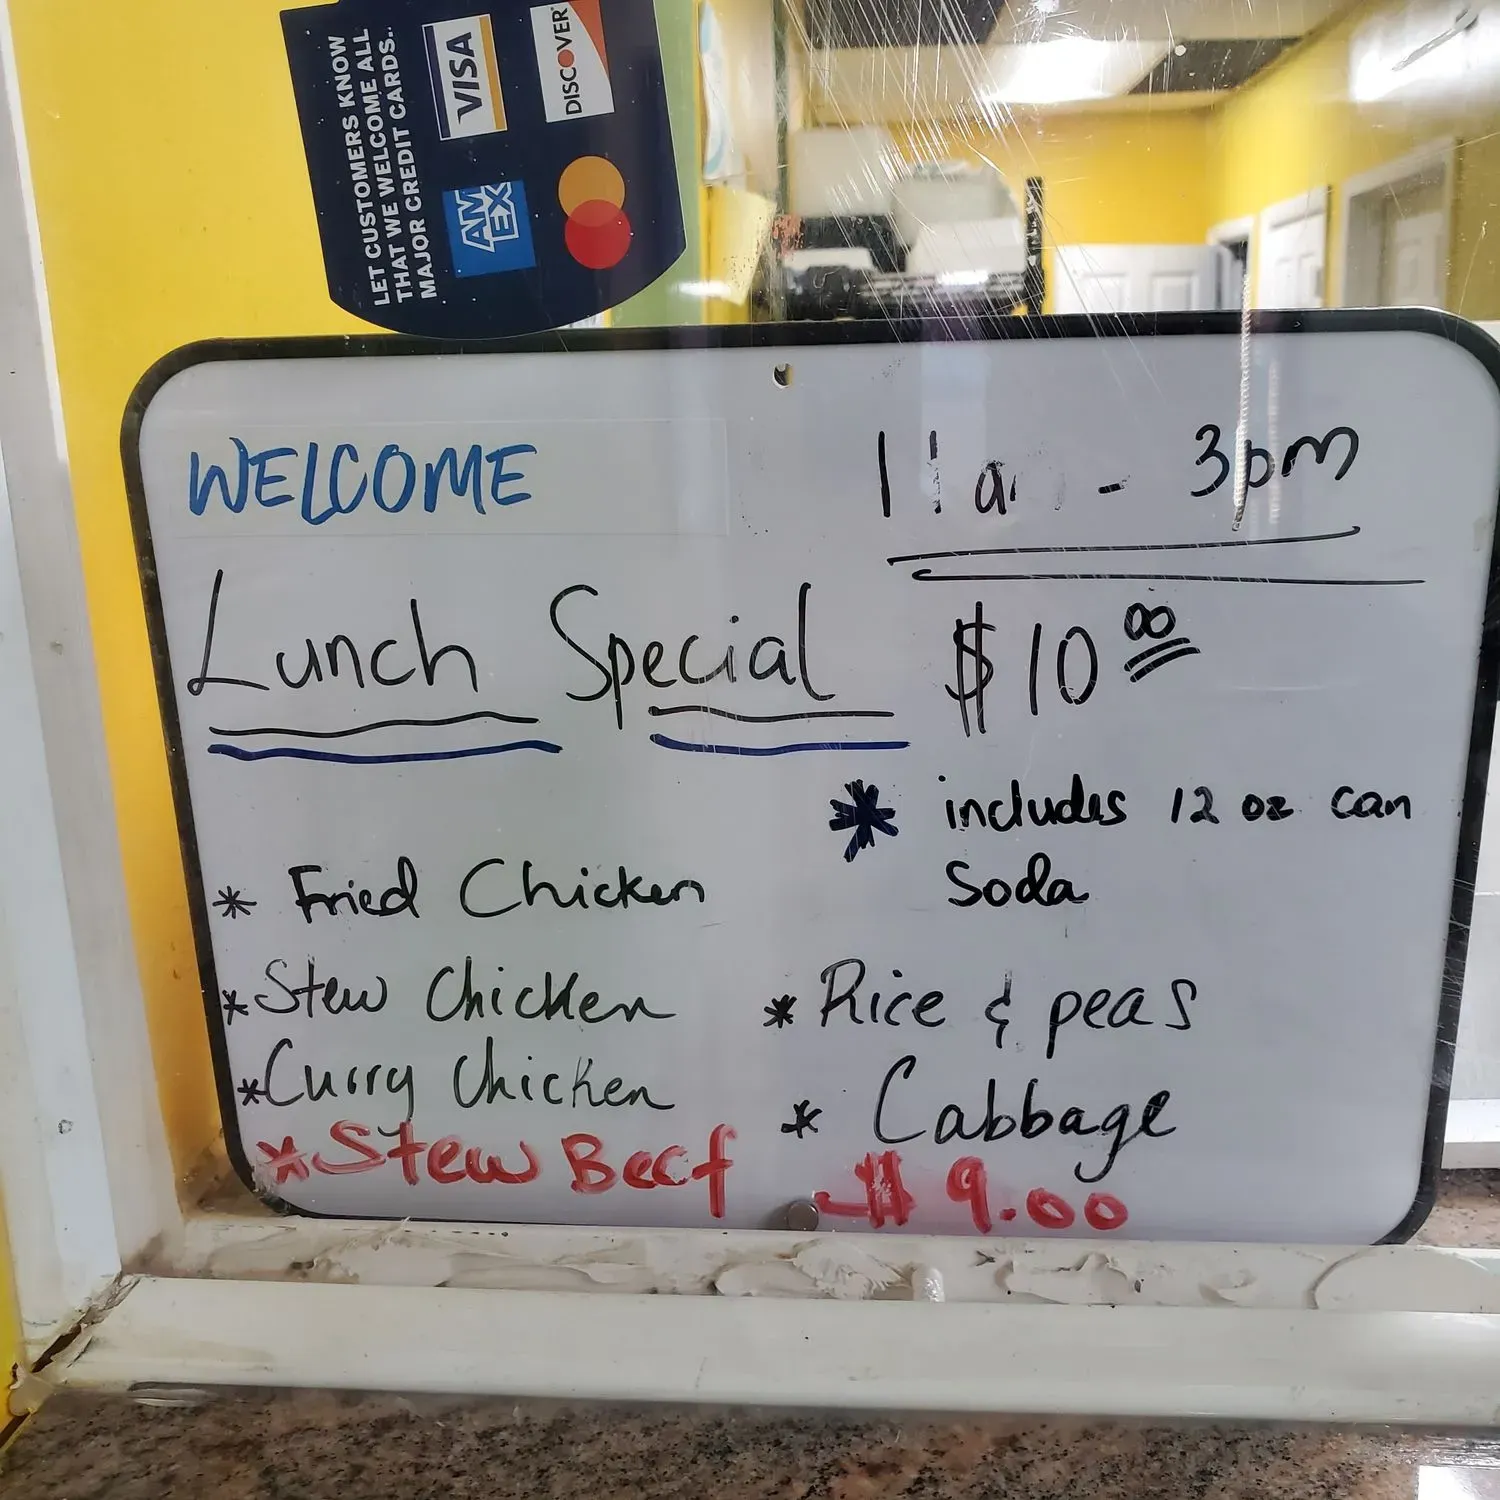 LET CUSTOMERS KNOW
THAT WE WELCOME ALL
MAJOR CREDIT CARDS..
VISA
DISCOVER
AM
EX
WELCOME
11a - 3pm
Lunch Special $10.00
* includes 12 oz can
Soda
* Fried Chicken
* Stew Chicken
* Rice & peas
* Curry Chicken
* Cabbage
* Stew Beef $9.00